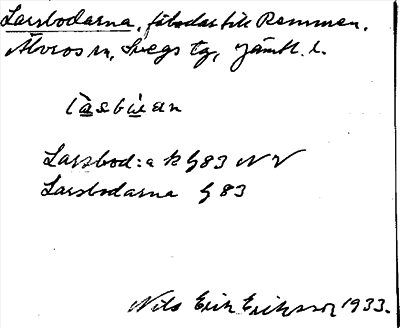 Larsbodarna, fäbodar till Remmen,
Älvros sn, Svegs tg, Jämtl. l.
làsbu̇ɑn
Larsbod:a k G83 NV
Larsbodarna G 83
Nils Erik Eriksson 1933.